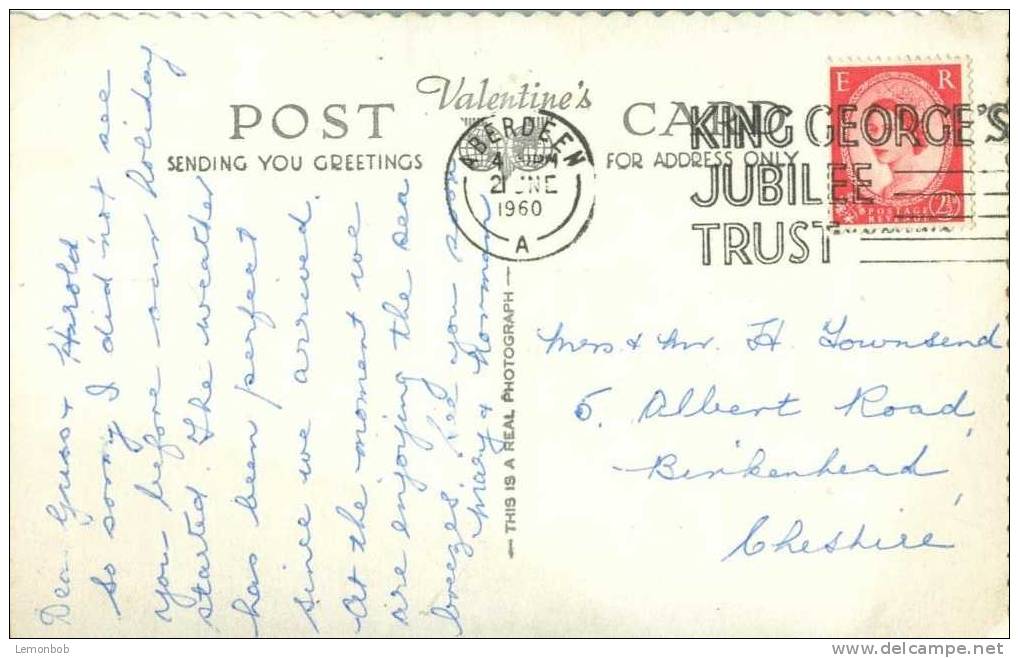 Valentine's
POST CARD
SENDING YOU GREETINGS
FOR ADDRESS ONLY
ABERDEEN
4
2 JNE
1960
A
KING GEORGE'S
JUBILEE
TRUST
E R
POSTAGE
REVENUE
2½
— THIS IS A REAL PHOTOGRAPH —
Dear & Harold
so sorry I did not see
you before our holiday
started. The weather
has been perfect
since we arrived.
At the moment we
are enjoying the sea
breezes. See you soon
Mary & Norman
Mrs & Mr. H. Townsend
5, Albert Road,
Birkenhead,
Cheshire
Lemonbob
www.delcampe.net